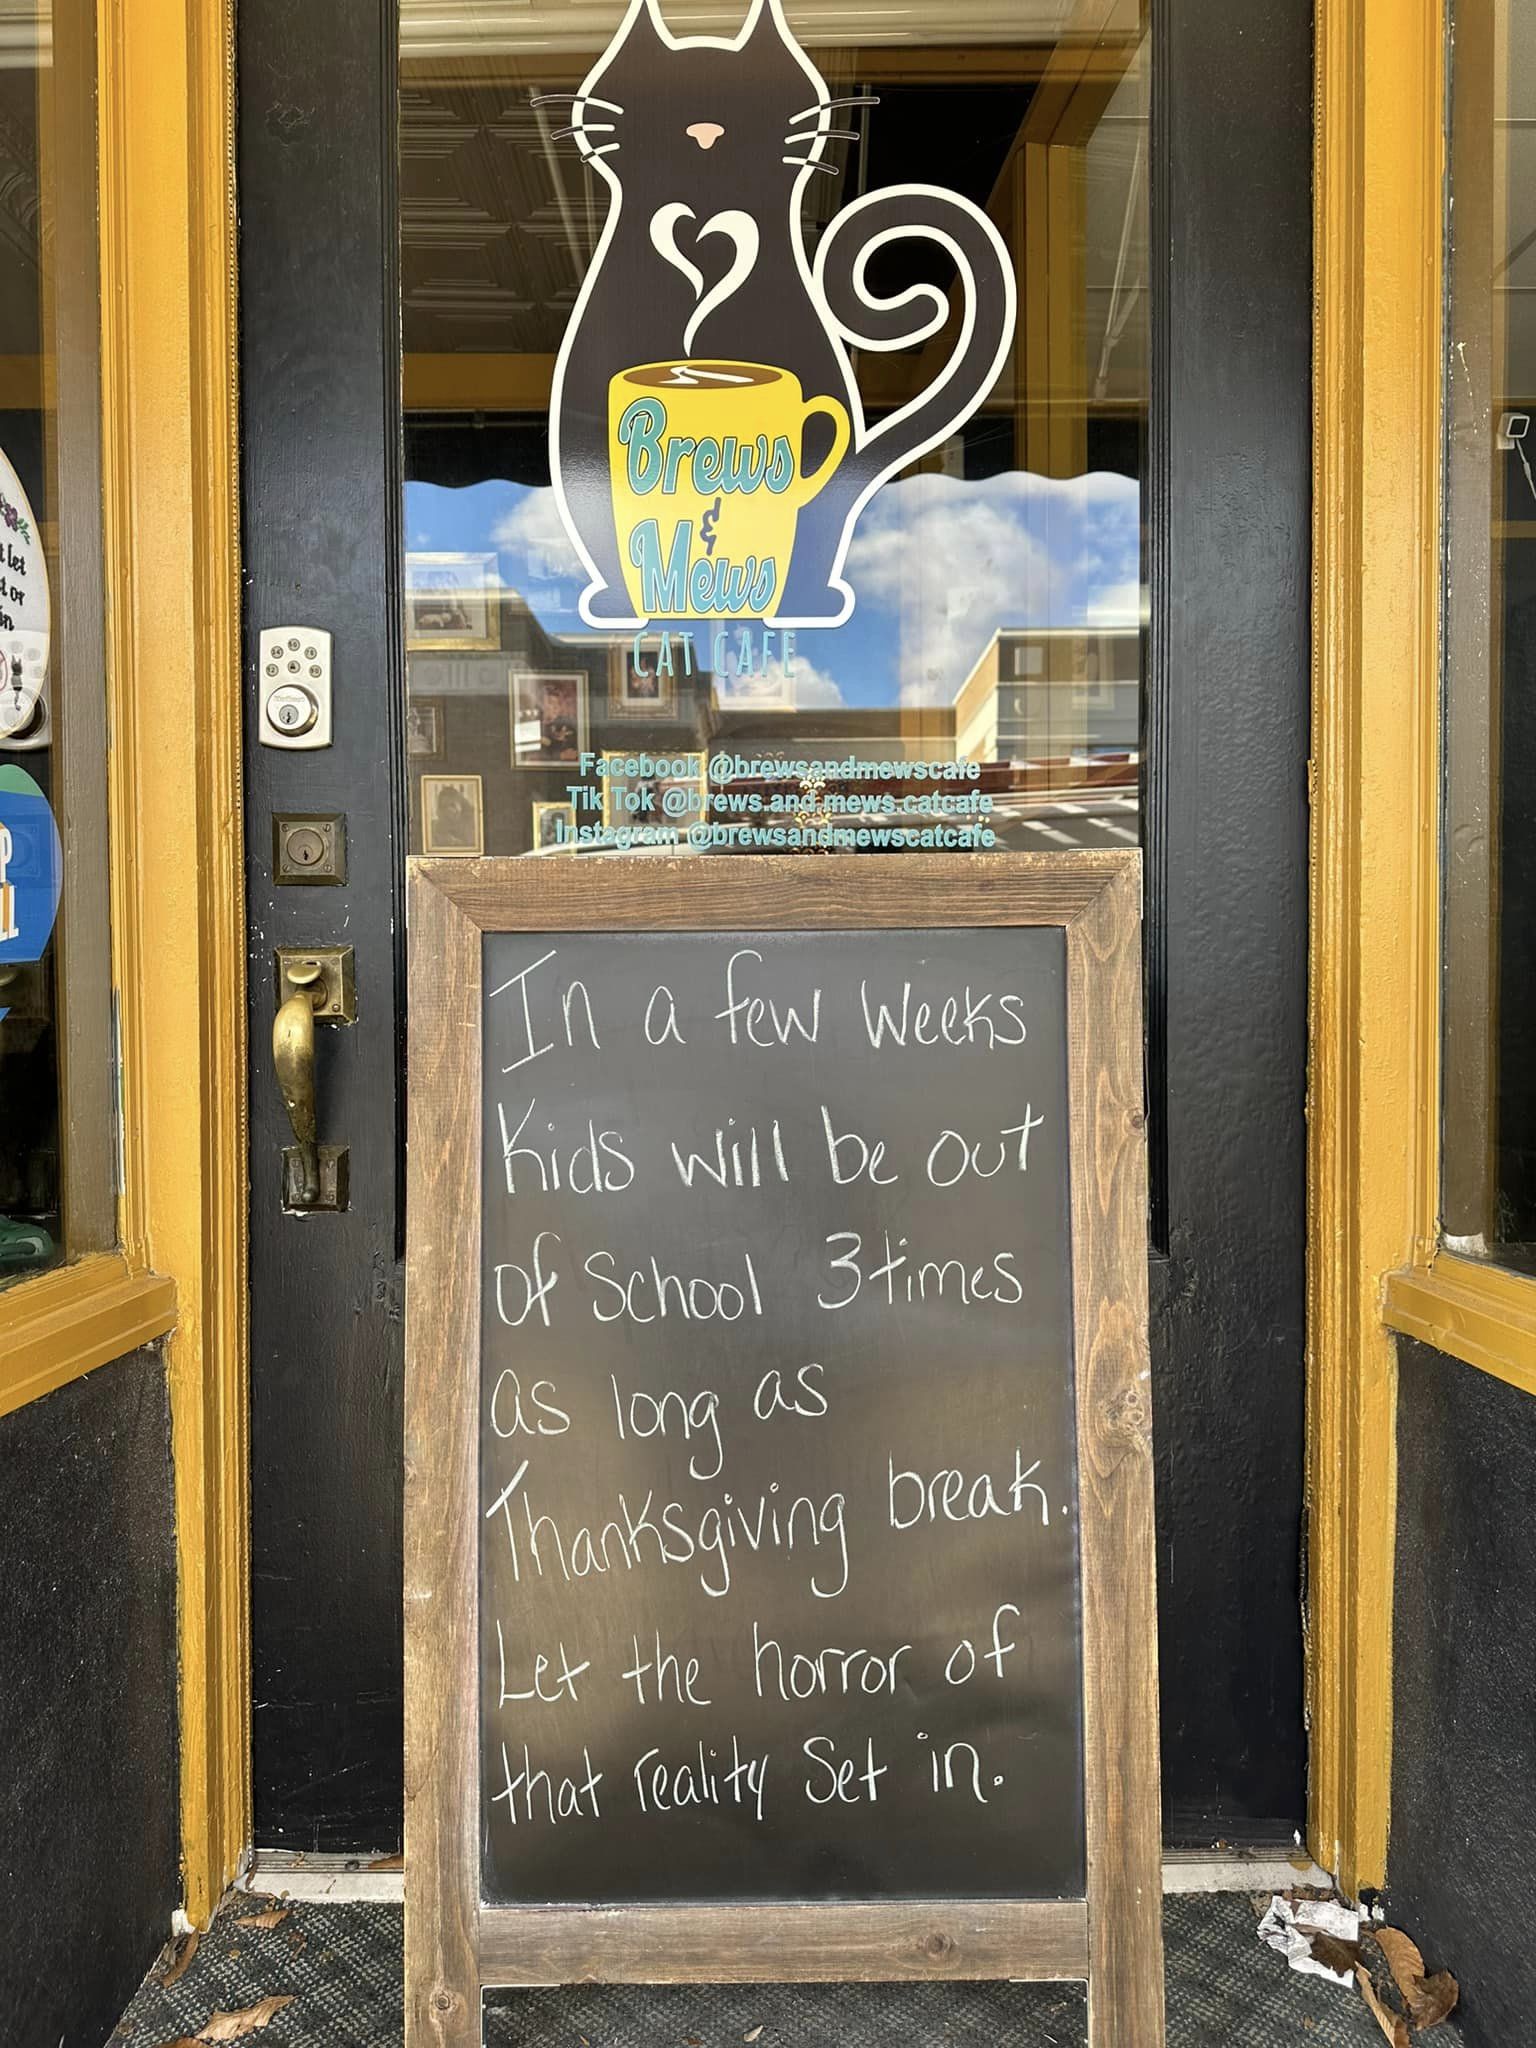 Brews
&
Mews
CAT CAFE
Facebook @brewsandmewscafe
Tik Tok @brews.and.mews.catcafe
Instagram @brewsandmewscatcafe
In a few Weeks
Kids will be out
of School 3 times
as long as
Thanksgiving break.
Let the horror of
that reality Set in.